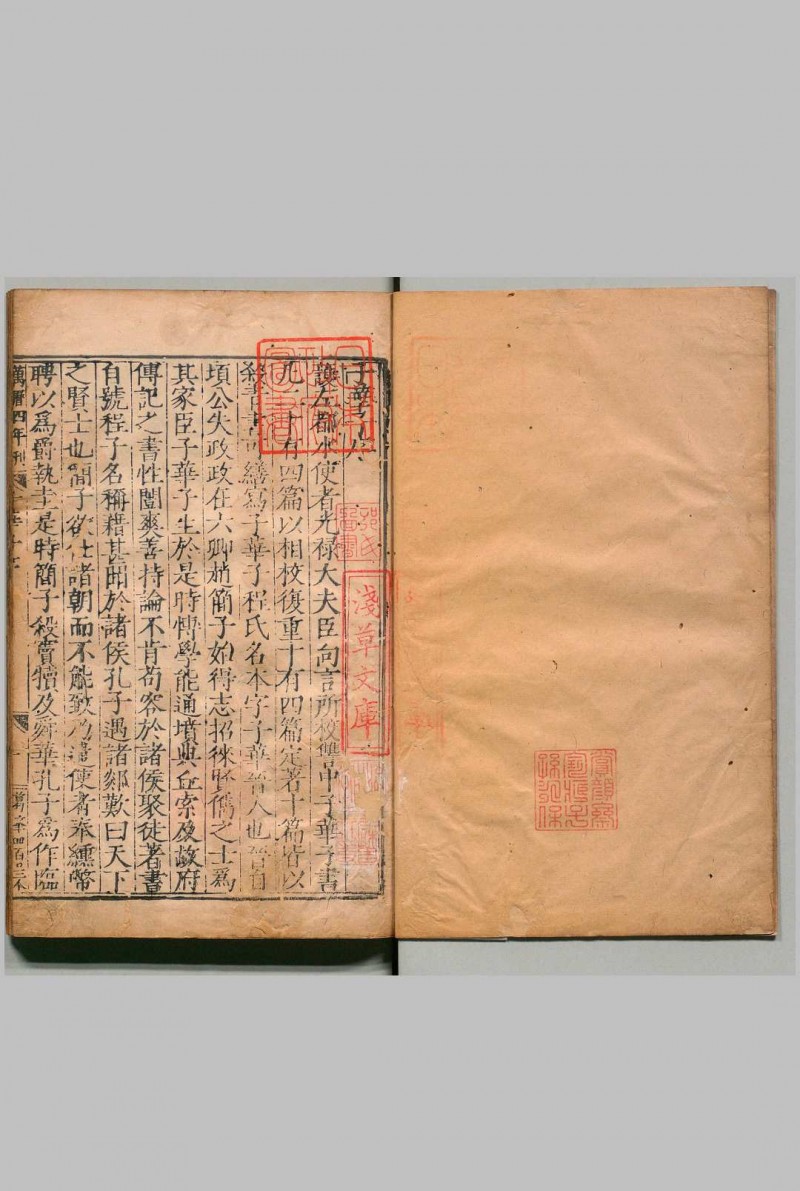 子華子序
護左都水使者光禄大夫臣向言所校讎中子華子書
凡二十有四篇以相校復重十有四篇定著十篇皆以
殺青書可繕寫子華子程氏名本字子華晉人也晉自
頃公失政政在六卿趙簡子始得志招徠賢儁之士爲
其家臣子華子生於是時博學能通墳典丘索及故府
傳記之書性闓爽善持論不肯苟容於諸侯聚徒著書
自號程子名稱藉甚聞於諸侯孔子遇諸郯歎曰天下
之賢士也簡子欲仕諸朝而不能致乃遣使者奉纁幣
聘以爲爵執圭是時簡子殺竇犢及舜華孔子爲作臨
萬曆四年刊
淺草文庫